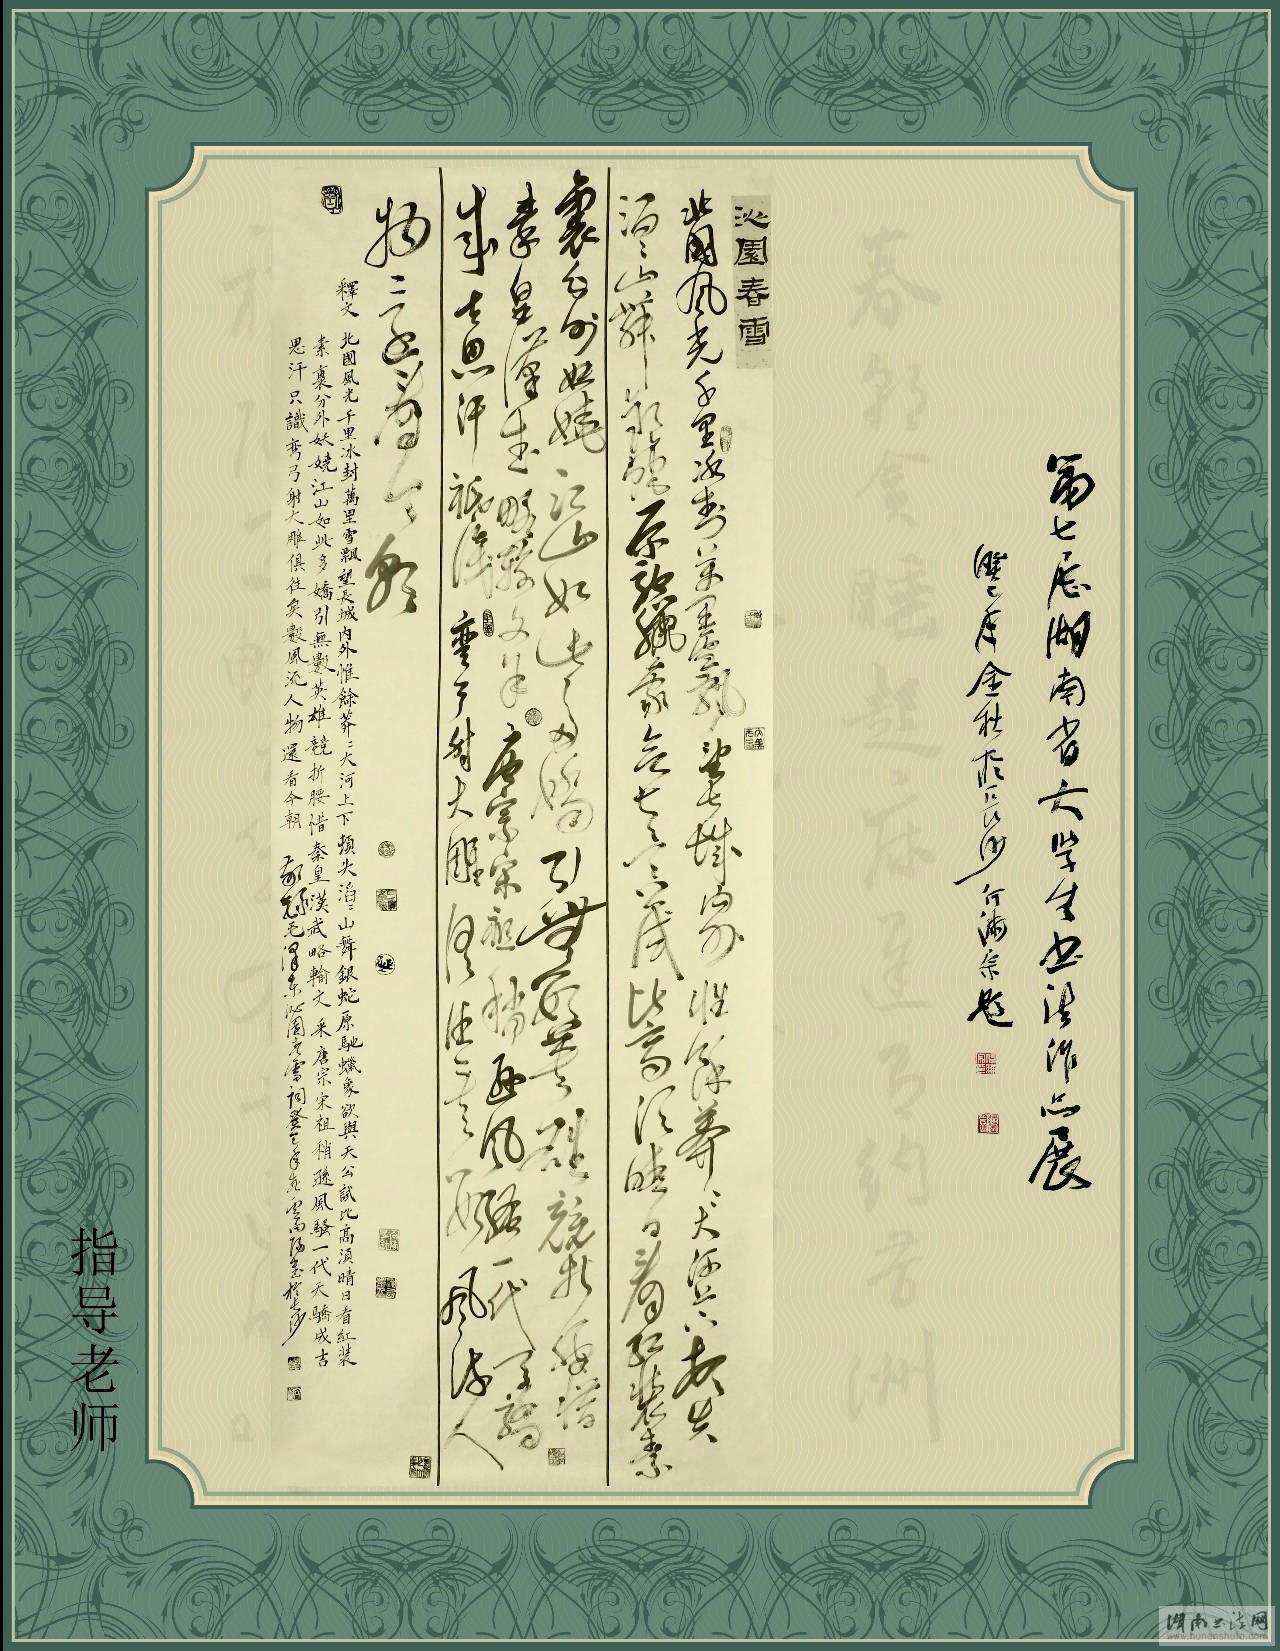 第七届湖南省大学生书法作品展
癸巳年金秋於长沙何满宗题
沁園春雪
北國風光千里冰封萬里雪飄望長城内外惟餘莽〻大河上下頓失
滔〻山舞銀蛇原馳蠟象欲與天公試比高須晴日看紅裝素
裹分外妖嬈江山如此多嬌引無數英雄競折腰惜
秦皇漢武略輸文采唐宗宋祖稍遜風騷一代天驕
成吉思汗祇識彎弓射大雕俱往矣數風流人
物還看今朝
釋文
北國風光千里冰封萬里雪飄望長城内外惟餘莽〻大河上下頓失滔〻山舞銀蛇原馳蠟象欲與天公試比高須晴日看紅裝
素裹分外妖嬈江山如此多嬌引無數英雄競折腰惜秦皇漢武略輸文采唐宗宋祖稍遜風騷一代天驕成吉
思汗只識彎弓射大雕俱往矣數風流人物還看今朝 毛澤東沁園春雪詞癸巳年於長沙
指导老师
湖南书法网